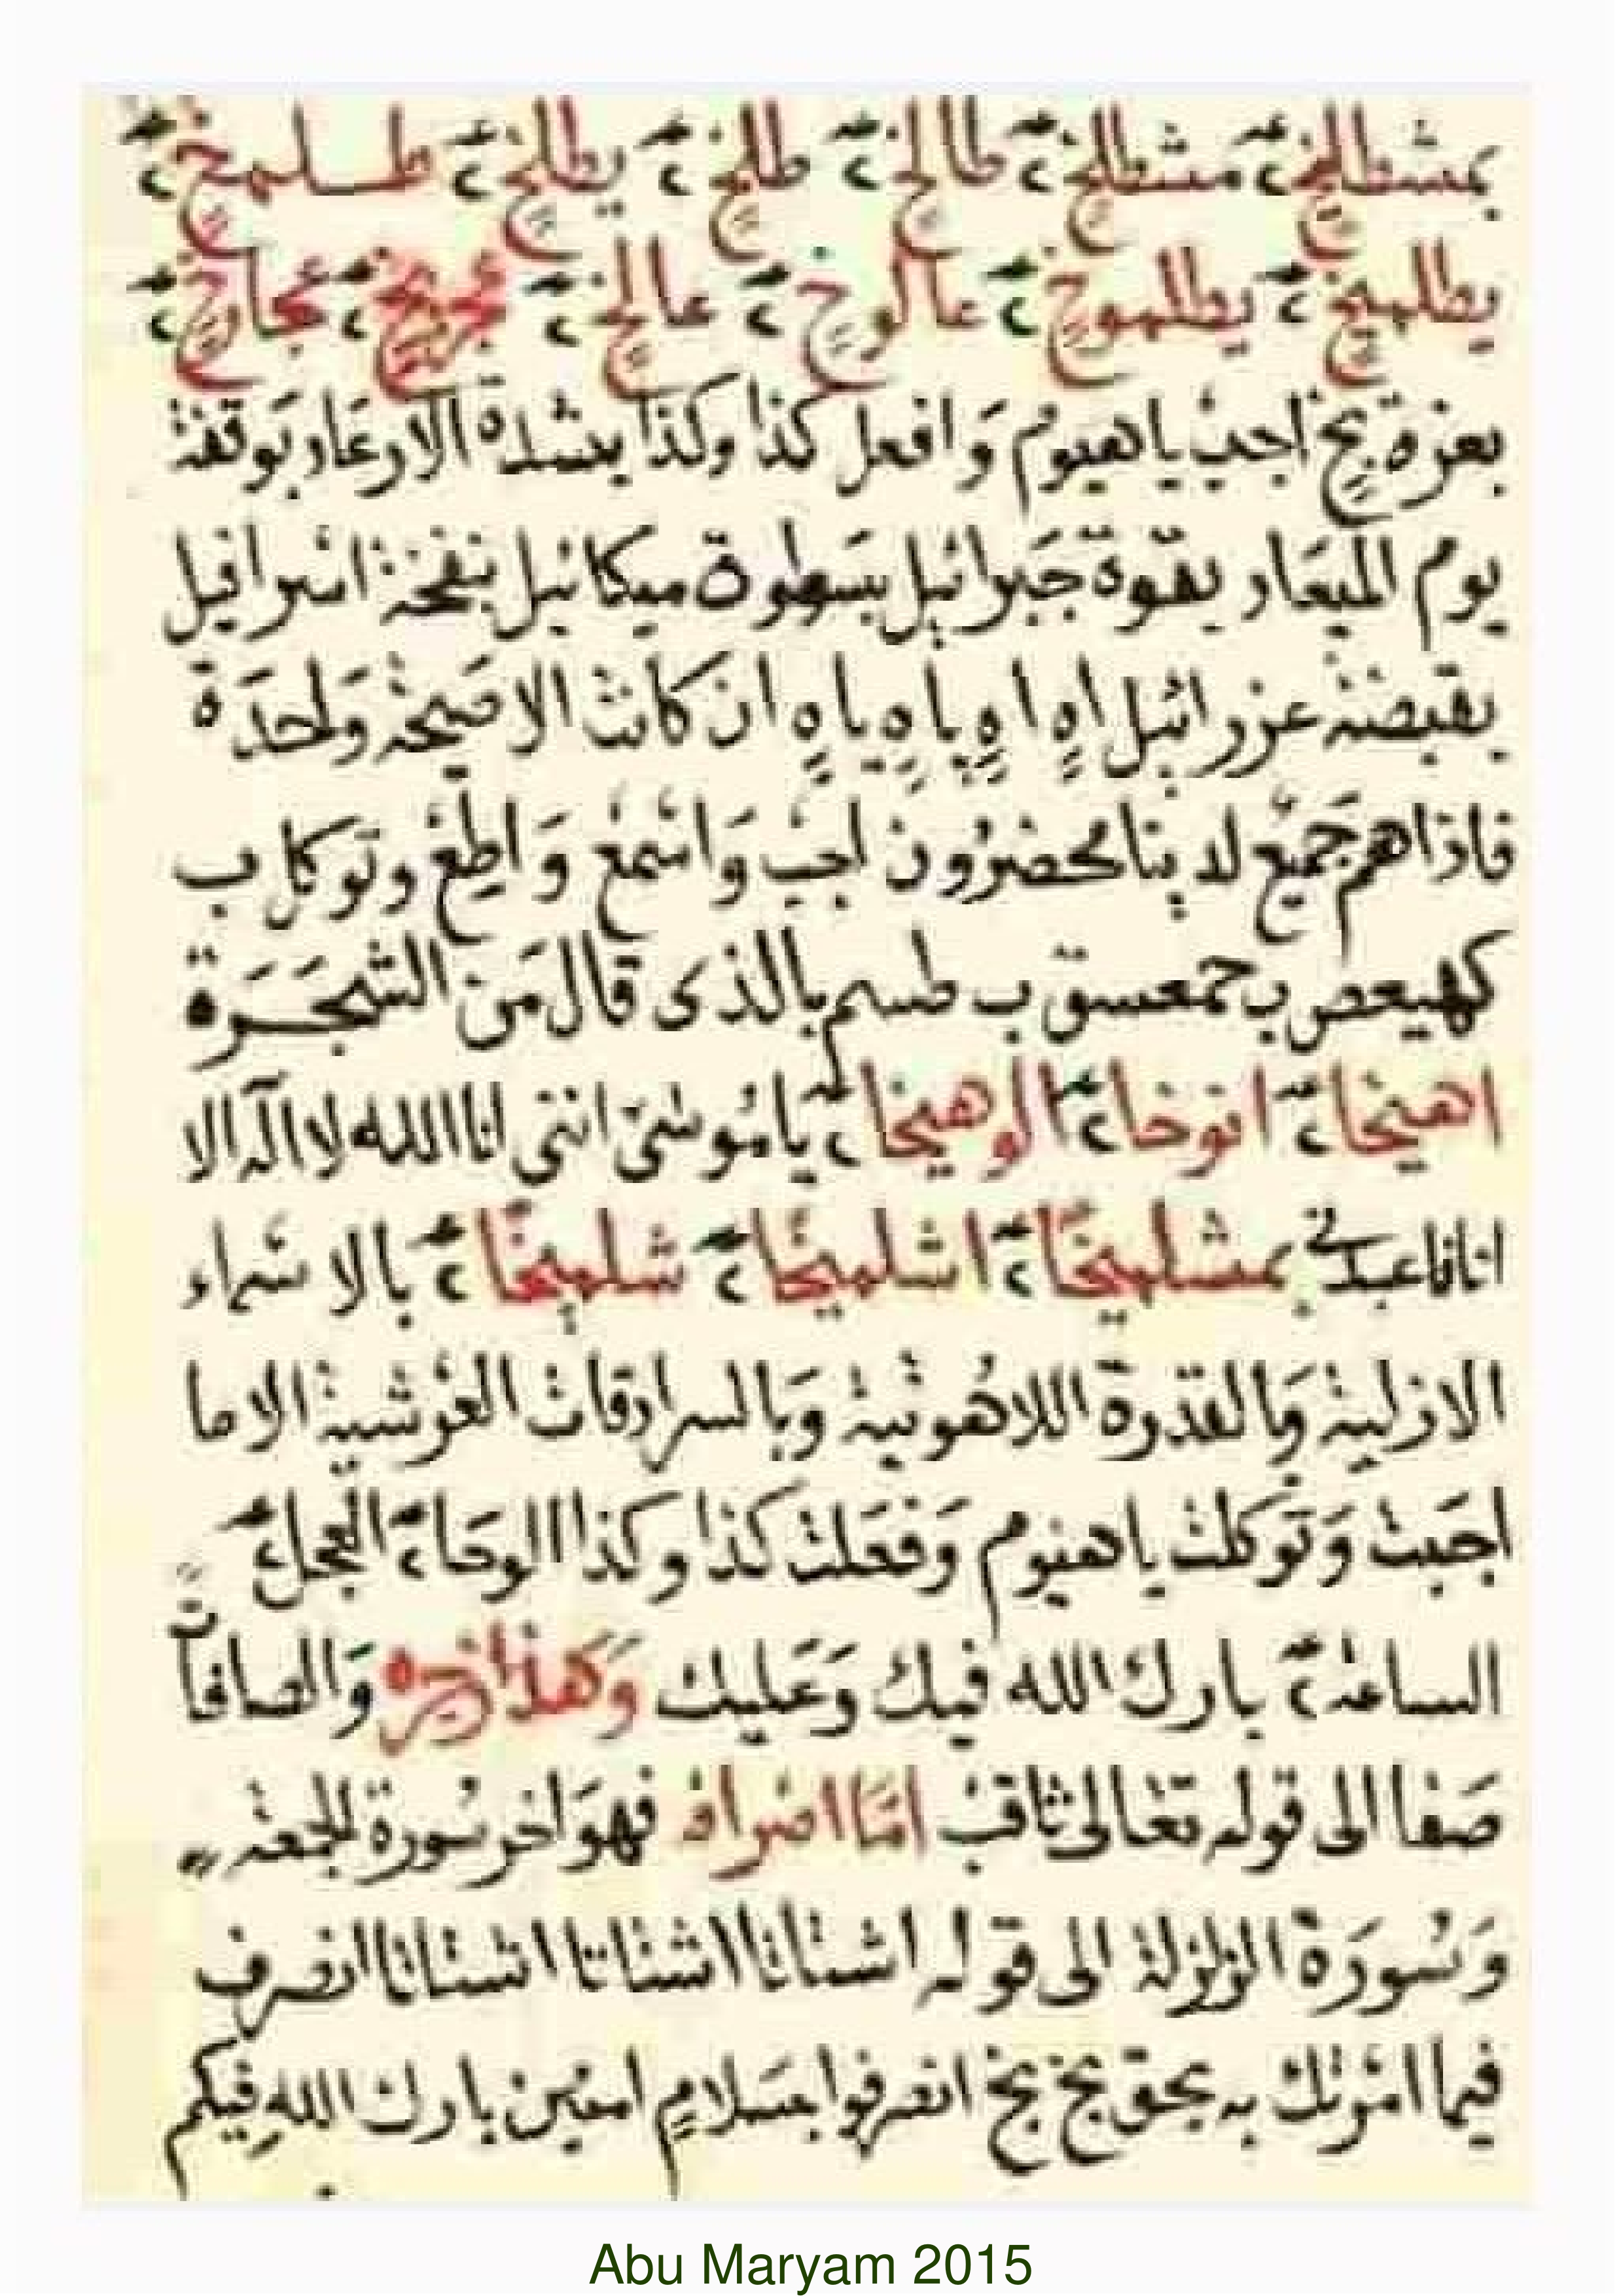 بمشطالخٍ ٢ مشطالخٍ ٢ طالخٍ ٢ طلخٍ ٢ يطلخٍ ٢ طلمخٍ ٢
يطلميخٍ ٢ يطلموخٍ ٢ عالوخٍ ٢ عالخٍ ٢
بعزة بخٍ اجب ياهيوم وَافعل كذا وكذا بشدة الارعاد بَوقفة
يوم الميعَاد بقوة جَبرائيل بسَطوة ميكائيل بنفخة اسرافيل
بقبضة عزرائيل اهٍ اهٍ ياهٍ ياهٍ ان كانت الا صَيحة وَاحدَة
فاذا هم جَميع لدينا محضرُون اجب وَاسْمع وَاطِعْ وتوكل ب
كهيعص ب حمعسق ب طسم بالذى قال مَن الشجَرَة
اهيخا ٢ انوخا ٢ الوهيخا ٢ يا مُوسَى اننى انا الله لا اله الا
انا فاعبدنى بمشلميخًا ٢ اشلميخًا ٢ شلميخًا ٢ بالاسماء
الازلية وَبالقدرة اللاهُوتية وَبالسرادقات العَرْشية الا ما
اجَبت وَتوَكلت ياهيوم وَفعَلت كذا وكذا الوحَا ٢ العجل ٢
الساعة ٢ بارك الله فيك وَعَليك وَهَذا زجره وَالصافات
صَفا الى قوله تعَالى ثاقب امَّا اصراف فهوَ اخر سُورة الجمعة
وَسُورَة الزلزلة الى قوله اشتاتا اشتاتا اشتاتا انصرف
فيما امَرْتك به بحق بخ بخ انصرفوا بسَلامٍ امين بارك اللهِ فيكم
Abu Maryam 2015